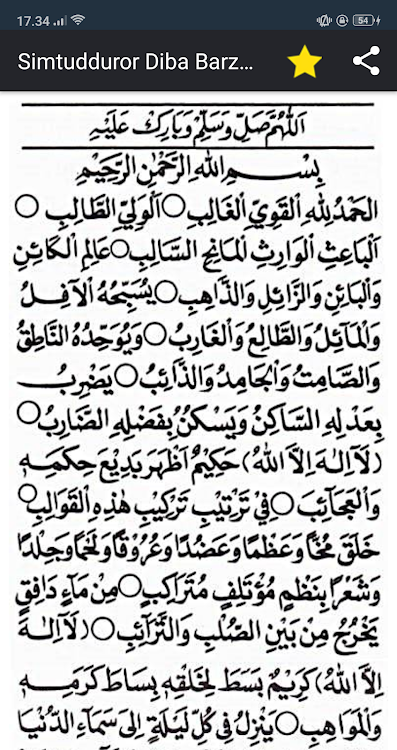 17.34
54
Simtudduror Diba Barz...
اَللّٰهُمَّ صَلِّ وَسَلِّمْ وَبَارِكْ عَلَيْهِ
بِسْمِ اللهِ الرَّحْمٰنِ الرَّحِيْمِ
اَلْحَمْدُ لِلّٰهِ الْقَوِيِّ الْغَالِبِ ○ اَلْوَلِيِّ الطَّالِبِ ○
اَلْبَاعِثِ الْوَارِثِ الْمَانِحِ السَّالِبِ ○ عَالِمِ الْكَائِنِ
وَالْبَائِنِ وَالزَّائِلِ وَالذَّاهِبِ ○ يُسَبِّحُهُ الْاٰفِلُ
وَالْمَآئِلُ وَالطَّالِعُ وَالْغَارِبُ ○ وَيُوَحِّدُهُ النَّاطِقُ
وَالصَّامِتُ وَالْجَامِدُ وَالذَّآئِبُ ○ يَضْرِبُ
بِعَدْلِهِ السَّاكِنُ وَيَسْكُنُ بِفَضْلِهِ الضَّارِبُ ○
(لَآ اِلٰهَ اِلَّا اللهُ) حَكِيْمٌ اَظْهَرَ بَدِيْعَ حِكَمِهِ
وَالْعَجَآئِبَ ○ فِيْ تَرْتِيْبِ تَرْكِيْبِ هٰذِهِ الْقَوَالِبِ ○
خَلَقَ مُخًّا وَعَظْمًا وَعَضُدًا وَعُرُوْقًا وَلَحْمًا وَجِلْدًا
وَشَعْرًا بِنَظْمٍ مُؤْتَلِفٍ مُتَرَاكِبٍ ○ مِنْ مَآءٍ دَافِقٍ
يَخْرُجُ مِنْ بَيْنِ الصُّلْبِ وَالتَّرَآئِبِ ○ (لَآ اِلٰهَ
اِلَّا اللهُ) كَرِيْمٌ بَسَطَ لِخَلْقِهِ بِسَاطَ كَرَمِهِ
وَالْمَوَاهِبِ ○ يَنْزِلُ فِيْ كُلِّ لَيْلَةٍ اِلٰى سَمَآءِ الدُّنْيَا